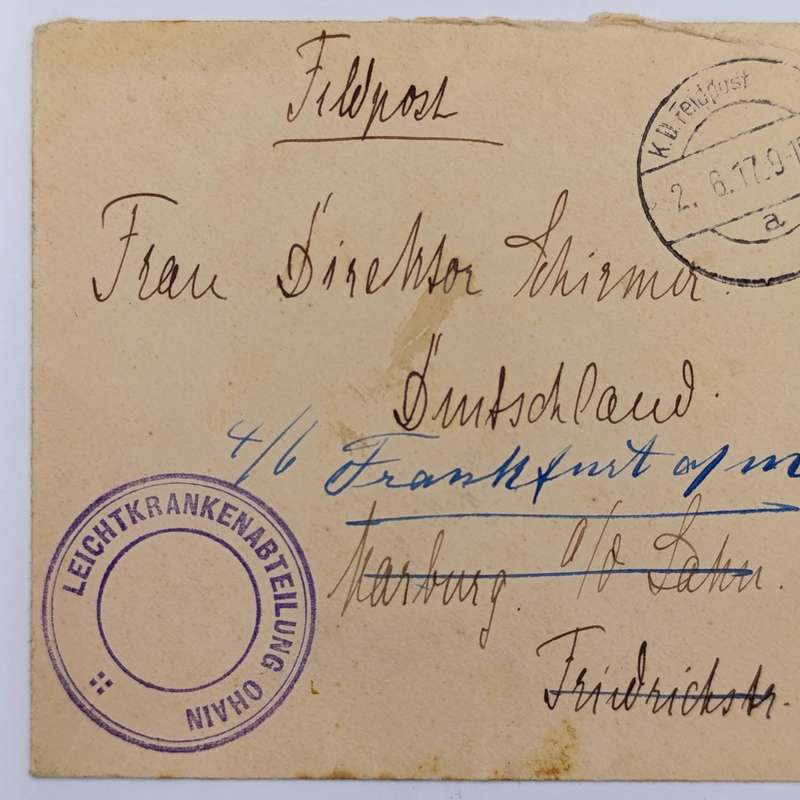 Feldpost
K.D.Feldpost
2. 6.17.9-1
a
Frau Direktor Schirmer.
Deutschland.
4/6 Frankfurt a/m
Marburg. a/d Lahn.
Friedrichstr.
LEICHTKRANKENABTEILUNG OHAIN